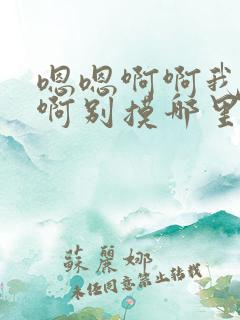 嗯嗯啊啊我
啊别摸那里
蘇麗娜
未经同意禁止转载